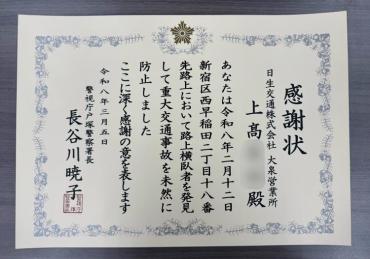 感謝状
日生交通株式会社 大泉営業所
上髙 殿
あなたは令和八年二月十二日
新宿区西早稲田二丁目十八番
先路上において路上横臥者を発見
して重大交通事故を未然に
防止しました
ここに深く感謝の意を表します
令和八年三月五日
警視庁戸塚警察署長
長谷川暁子